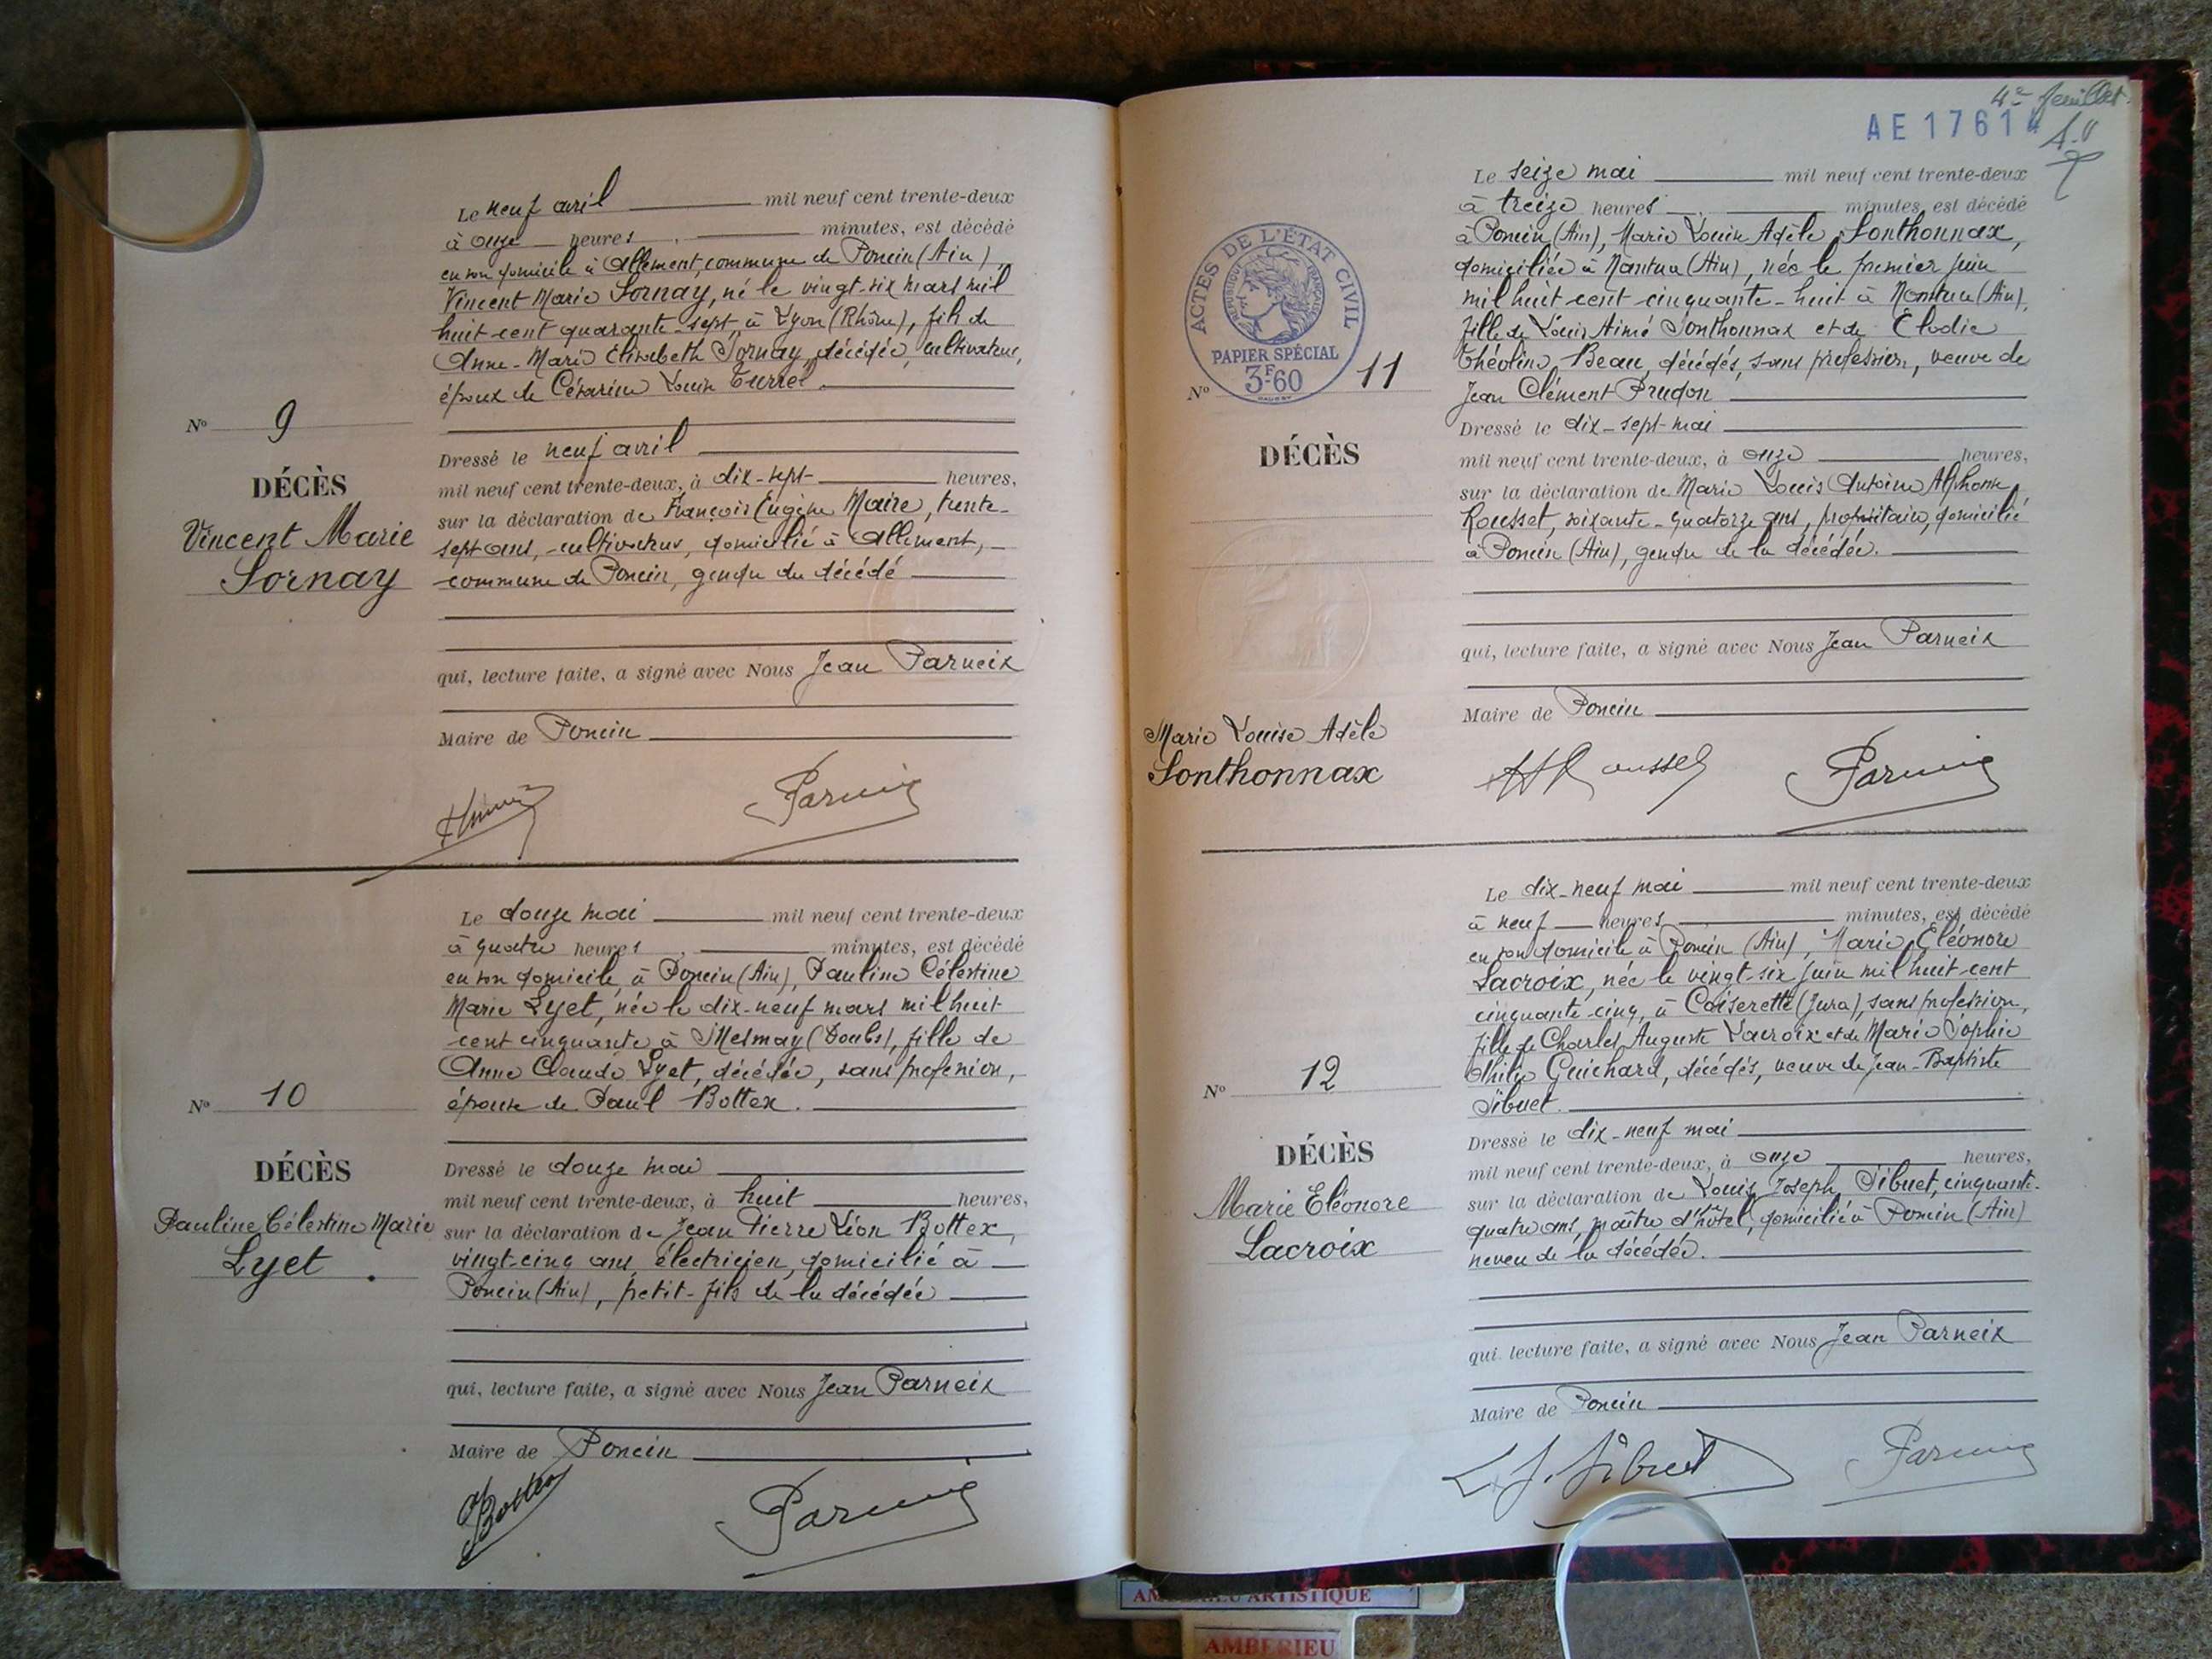 Le neuf avril mil neuf cent trente-deux
à onze heures, minutes, est décédé
en son domicile à Allement, commune de Poncin (Ain),
Vincent Marie Sornay, né le vingt-six mars mil
huit cent quarante-sept, à Lyon (Rhône), fils de
Anne-Marie Elisabeth Sornay, décédée, cultivateur,
époux de Césarine Louise Turrel.
N° 9
DÉCÈS
Vincent Marie
Sornay
Dressé le neuf avril
mil neuf cent trente-deux, à dix-sept heures,
sur la déclaration de François Eugène Maire, trente-
sept ans, cultivateur, domicilié à Allement,
commune de Poncin, gendre du décédé
qui, lecture faite, a signé avec Nous Jean Parneix
Maire de Poncin
Le douze mai mil neuf cent trente-deux
à quatre heures, minutes, est décédé
en son domicile, à Poncin (Ain), Pauline Célestine
Marie Lyet, née le dix-neuf mars mil huit
cent cinquante à Mesmay (Doubs), fille de
Anne Claude Lyet, décédée, sans profession,
épouse de Paul Bottex.
N° 10
DÉCÈS
Pauline Célestine Marie
Lyet.
Dressé le douze mai
mil neuf cent trente-deux, à huit heures,
sur la déclaration de Jean Pierre Léon Bottex,
vingt-cinq ans, électricien, domicilié à
Poncin (Ain), petit-fils de la décédée
qui, lecture faite, a signé avec Nous Jean Parneix
Maire de Poncin
Bottex
4e feuillet
AE 1761
Le seize mai mil neuf cent trente-deux
à treize heures, minutes, est décédé
à Poncin (Ain), Marie Louise Adèle Sonthonnax,
domiciliée à Nantua (Ain), née le premier juin
mil huit cent cinquante-huit à Nantua (Ain),
fille de Louis Aimé Sonthonnax et de Elodie
Beau, décédés, sans profession, veuve de
Jean Clément Prudon
ACTES DE L'ÉTAT CIVIL
RÉPUBLIQUE FRANÇAISE
PAPIER SPÉCIAL
3F60
N° 11
DÉCÈS
Marie Louise Adèle
Sonthonnax
Dressé le dix-sept mai
mil neuf cent trente-deux, à onze heures,
sur la déclaration de Marie Louis Antoine Alphonse
Rousset, soixante-quatorze ans, propriétaire, domicilié
à Poncin (Ain), gendre de la décédée.
qui, lecture faite, a signé avec Nous Jean Parneix
Maire de Poncin
Le dix-neuf mai mil neuf cent trente-deux
à neuf heures, minutes, est décédé
en son domicile à Poncin (Ain), Marie Eléonore
Lacroix, née le vingt-six juin mil huit cent
cinquante-cinq, à Coiserette (Jura), sans profession,
fille de Charles Auguste Lacroix et de Marie Sophie
Guichard, décédés, veuve de Jean-Baptiste
Sibuet.
N° 12
DÉCÈS
Marie Eléonore
Lacroix
Dressé le dix-neuf mai
mil neuf cent trente-deux, à onze heures,
sur la déclaration de Louis Joseph Sibuet, cinquante-
quatre ans, maître d'hôtel, domicilié à Poncin (Ain)
neveu de la décédée.
qui, lecture faite, a signé avec Nous Jean Parneix
Maire de Poncin
L. J. Sibuet
ARTISTIQUE
AMBERIEU